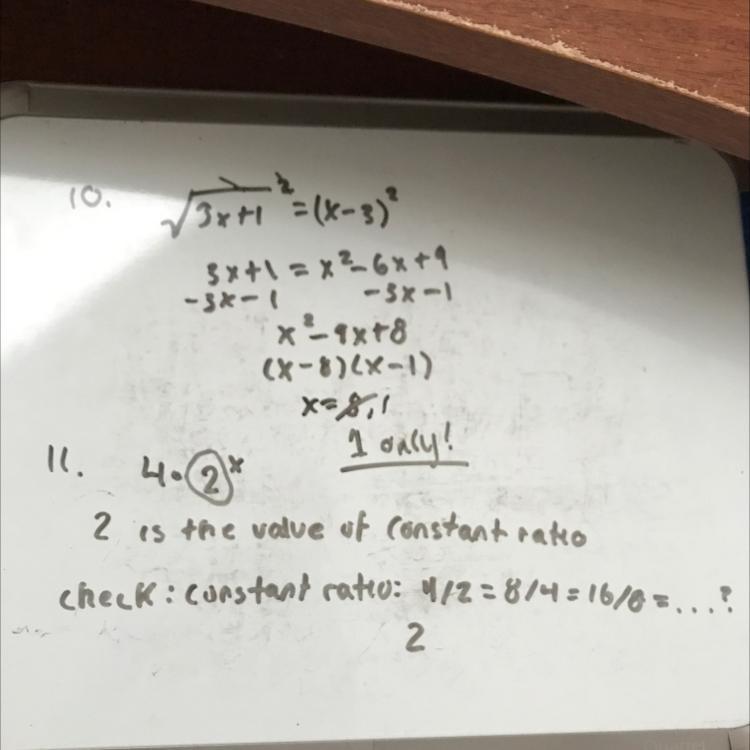 10. √3x+1² = (x-3)²
3x+1 = x²-6x+9
-3x-1 -3x-1
x²-9x+8
(x-8)(x-1)
x=8,1
1 only!
11. 4·2ˣ
2 is the value of constant ratio
check: constant ratio: 4/2=8/4=16/8=...?
2